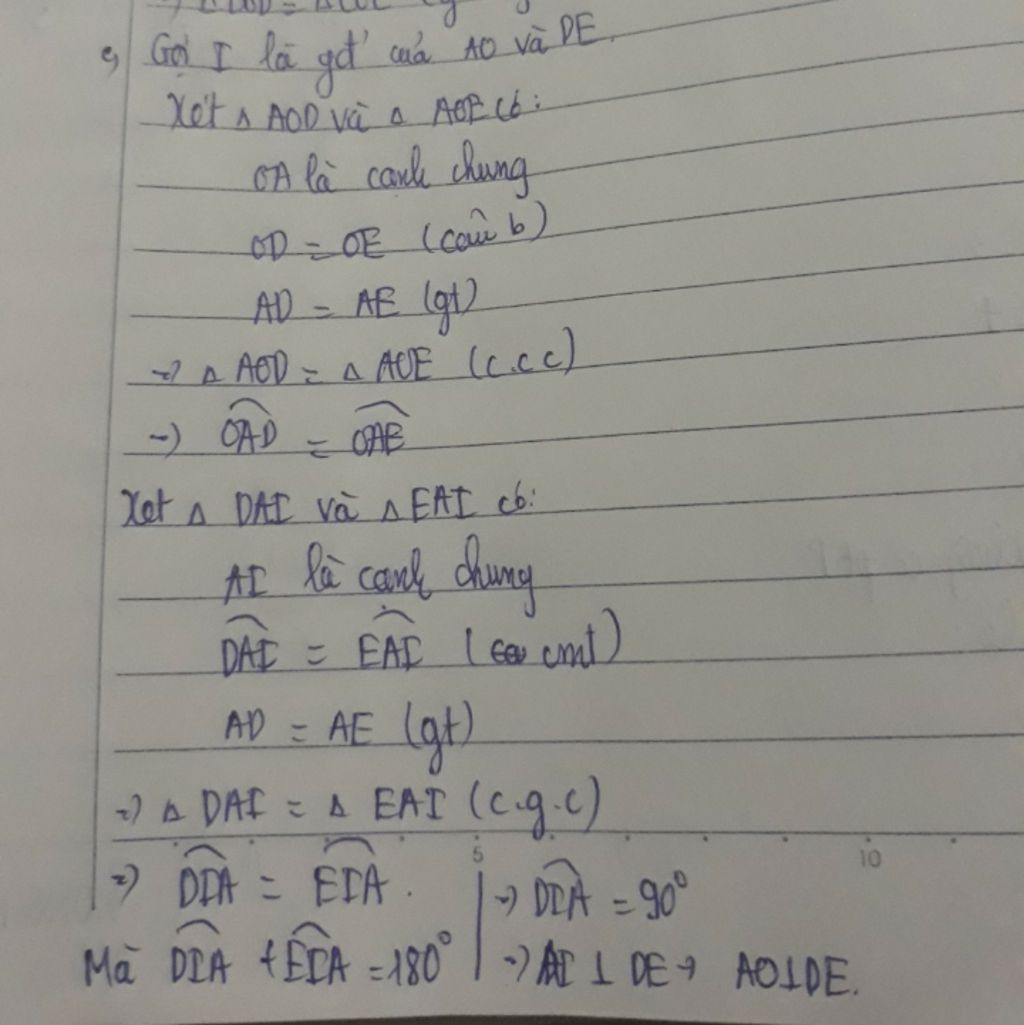 c, Gọi I là gđ' của AO và DE.
Xét △ AOD và △ AOE có:
OA là canh chung
OD = OE (câu b)
AD = AE (gt)
=> △ AOD = △ AOE (c.c.c)
=> OAD = OAE
Xet △ DAI và △ EAI có:
AI là canh chung
DAI = EAI ( cmt)
AD = AE (gt)
=> △ DAI = △ EAI (c.g.c)
5 10
=> DIA = EIA.
=> DIA = 90°
Mà DIA + EIA = 180°
=> AI ⊥ DE → AO⊥DE.